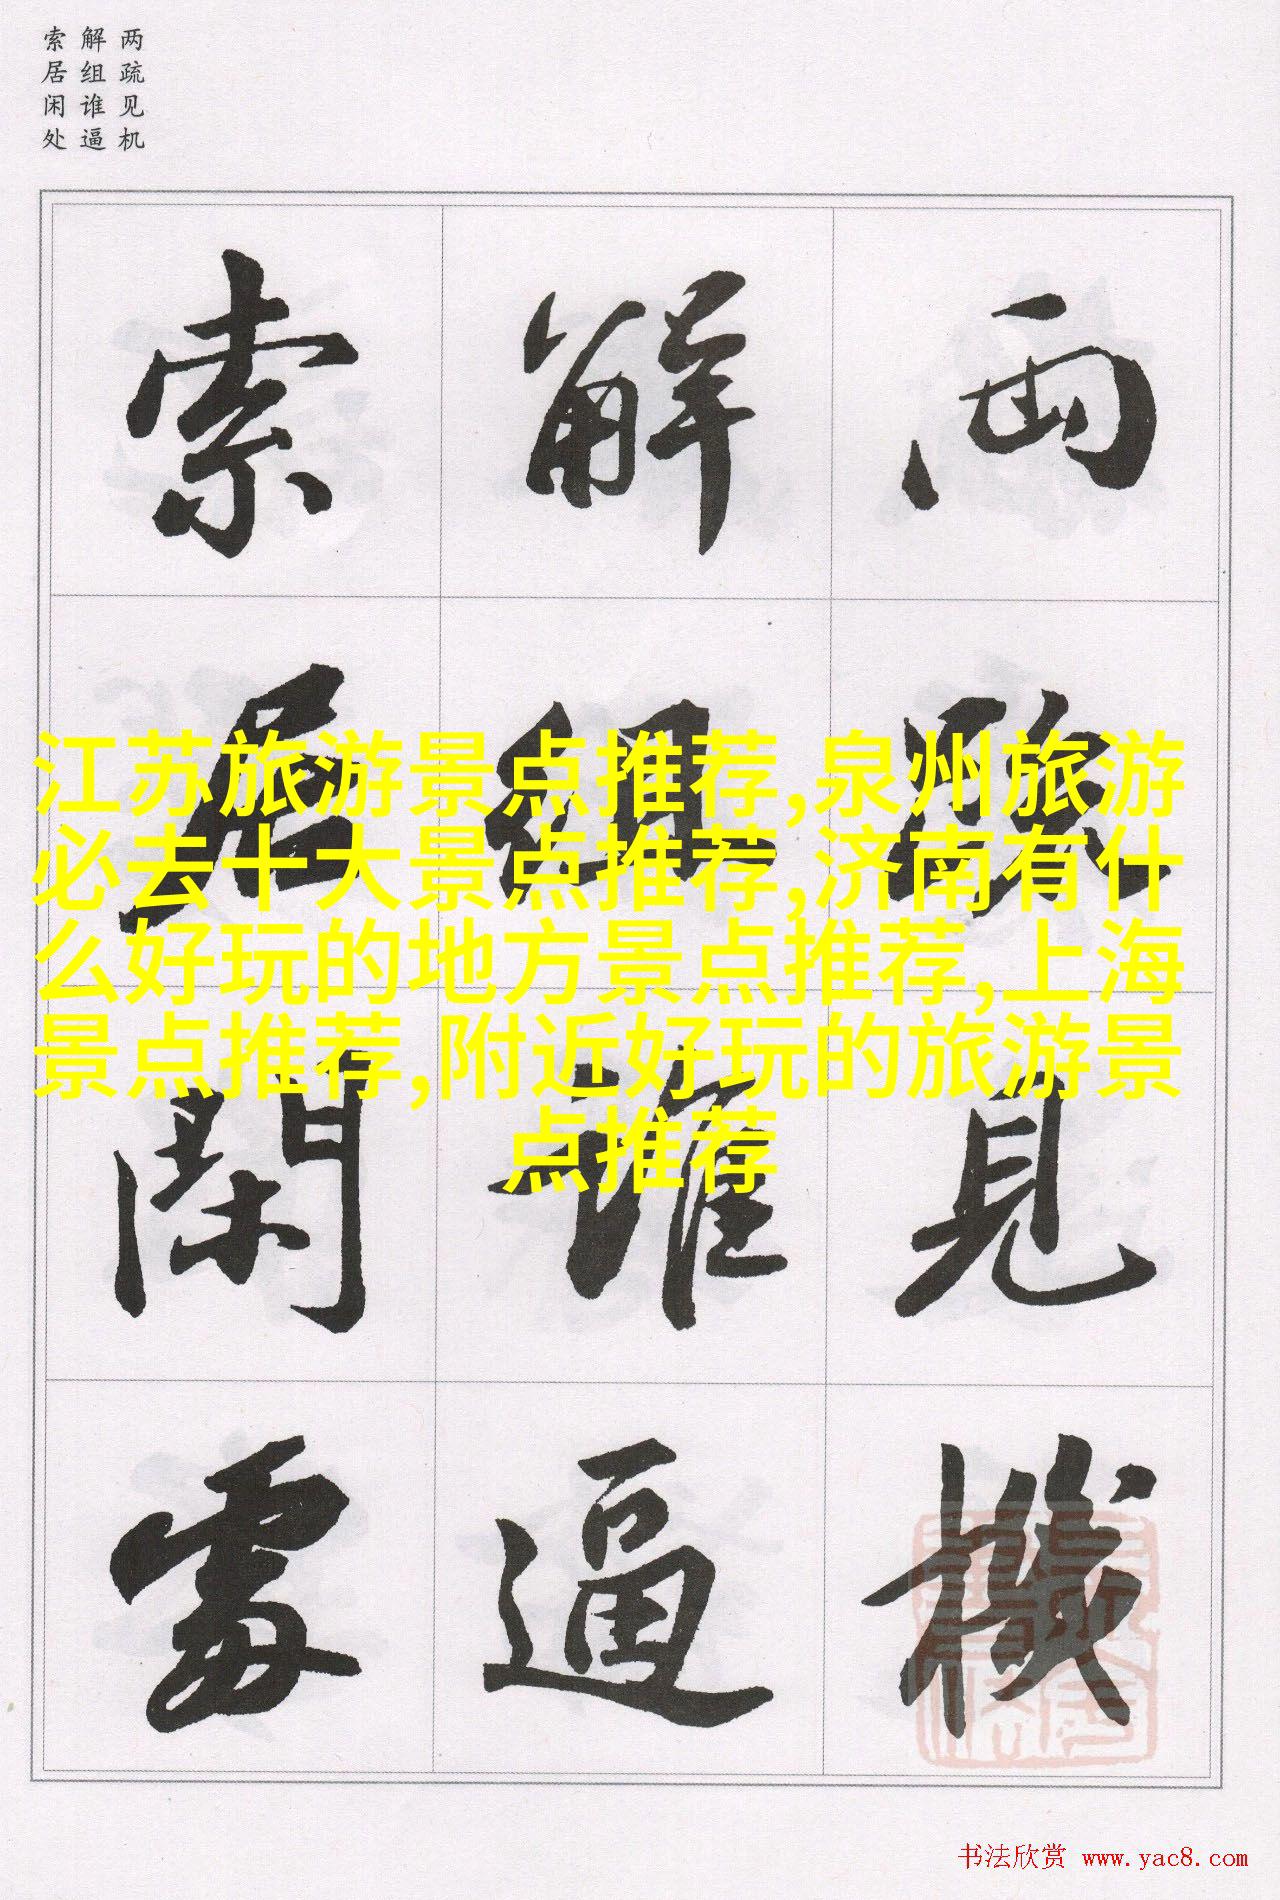 两疏见机
解组谁逼
索居闲处
兩疏見機
解組誰逼
索居閑處
江苏旅游景点推荐,泉州旅游
必去十大景点推荐,济南有什
么好玩的地方景点推荐,上海
景点推荐,附近好玩的旅游景
点推荐
书法欣赏 www.yac8.com